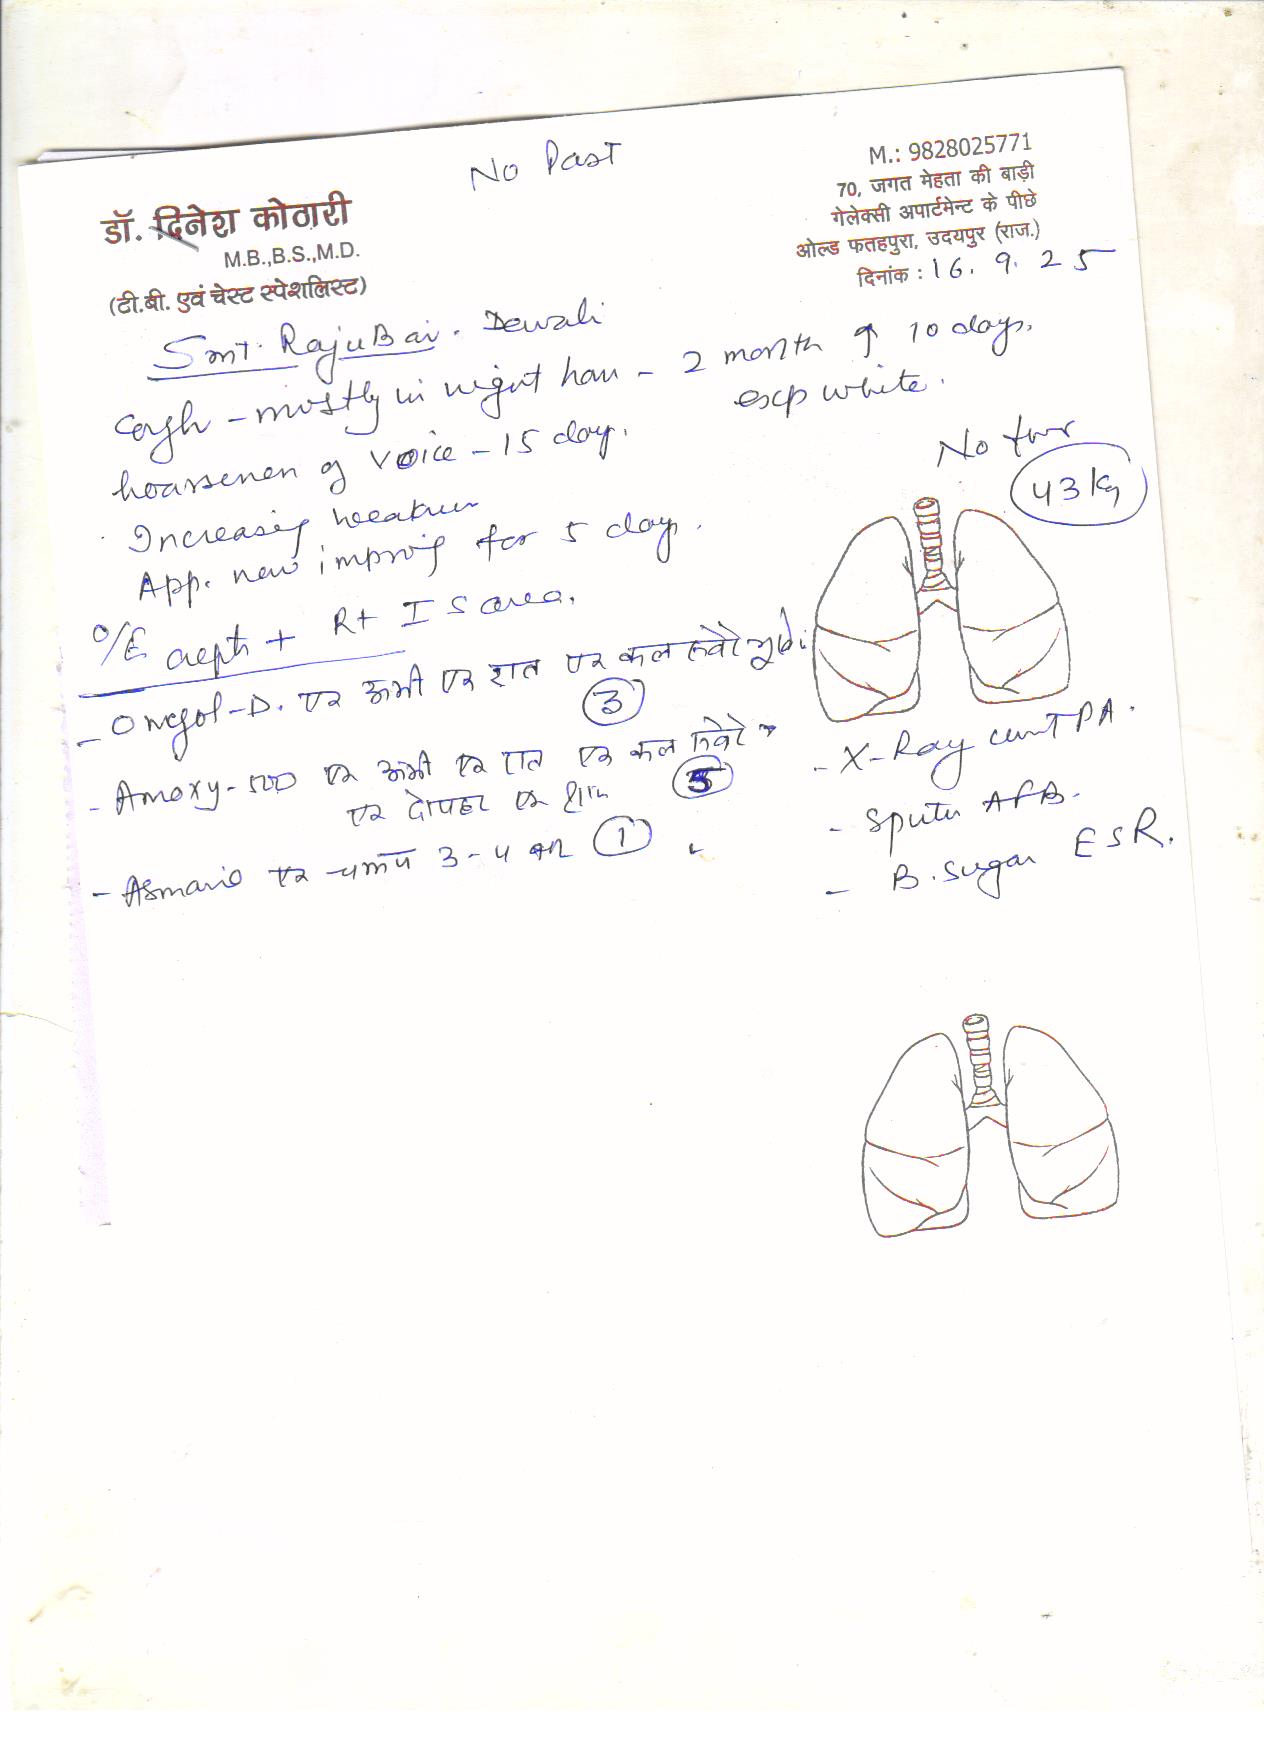 No Past
M.: 9828025771
70, जगत मेहता की बाड़ी
गेलेक्सी अपार्टमेन्ट के पीछे
ओल्ड फतहपुरा, उदयपुर (राज.)
दिनांक : 16.9.25
डॉ. दिनेश कोठारी
M.B.,B.S.,M.D.
(टी.बी. एवं चेस्ट स्पेशलिस्ट)
Smt. Raju Bai. Dewali
Cough - mostly in night - 2 month ↑ 10 days.
exp white.
hoarseness of voice - 15 day.
No fever
43 kg
Increasing weakness
App. now improving for 5 day.
O/E crepts + Rt I S area.
- Omegol-D. एक अभी एक रात एक कल सवेरे भूखे
3
- Amoxy-500 एक अभी एक रात एक कल सवेरे
एक दोपहर एक शाम
5
- एक चम्मच 3-4 बार 1
- X-Ray chest PA.
- Sputum AFB.
- B. Sugar ESR.